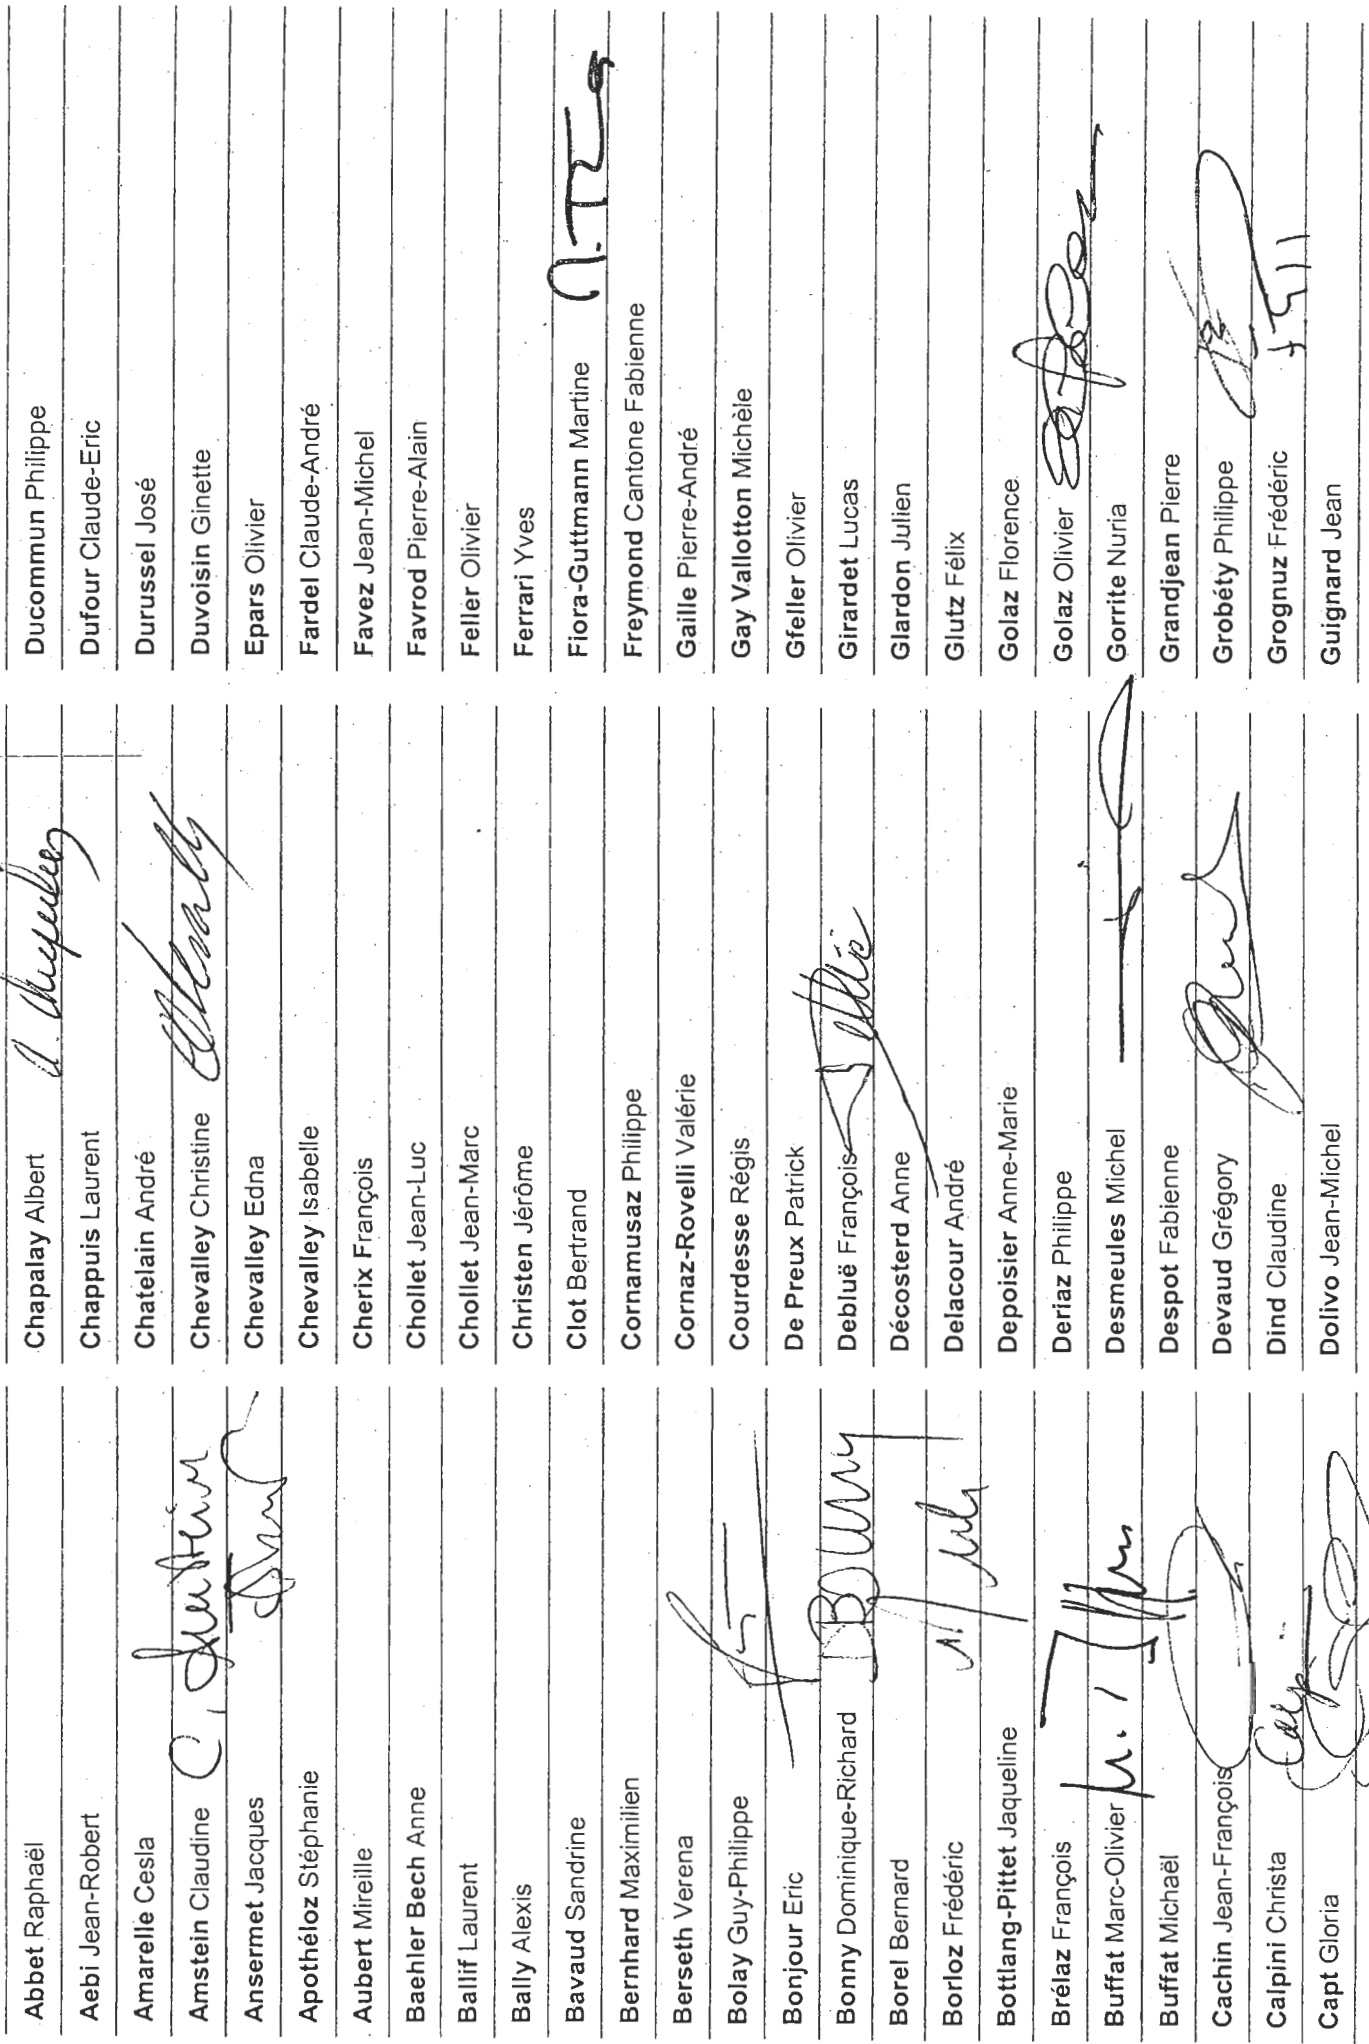 Abbet Raphaël
Aebi Jean-Robert
Amarelle Cesla
Amstein Claudine C. Amstein
Ansermet Jacques
Apothéloz Stéphanie
Aubert Mireille
Baehler Bech Anne
Ballif Laurent
Bally Alexis
Bavaud Sandrine
Bernhard Maximilien
Berseth Verena
Bolay Guy-Philippe
Bonjour Eric
Bonny Dominique-Richard DBonny
Borel Bernard
Borloz Frédéric
Bottlang-Pittet Jaqueline
Brélaz François
Buffat Marc-Olivier
Buffat Michaël
Cachin Jean-François
Calpini Christa
Capt Gloria
Chapalay Albert
Chappuis Laurent
Chatelain André
Chevalley Christine
Chevalley Edna
Chevalley Isabelle
Cherix François
Chollet Jean-Luc
Chollet Jean-Marc
Christen Jérôme
Clot Bertrand
Cornamusaz Philippe
Cornaz-Rovelli Valérie
Courdesse Régis
De Preux Patrick
Debluë François
Décosterd Anne
Delacour André
Depoisier Anne-Marie
Deriaz Philippe
Desmeules Michel
Despot Fabienne
Devaud Grégory
Dind Claudine
Dolivo Jean-Michel
Ducommun Philippe
Dufour Claude-Eric
Durussel José
Duvoisin Ginette
Epars Olivier
Fardel Claude-André
Favez Jean-Michel
Favrod Pierre-Alain
Feller Olivier
Ferrari Yves
Fiora-Guttmann Martine
Freymond Cantone Fabienne
Gaille Pierre-André
Gay Vallotton Michèle
Gfeller Olivier
Girardet Lucas
Glardon Julien
Glutz Félix
Golaz Florence
Golaz Olivier
Gorrite Nuria
Grandjean Pierre
Grobéty Philippe
Grognuz Frédéric
Guignard Jean